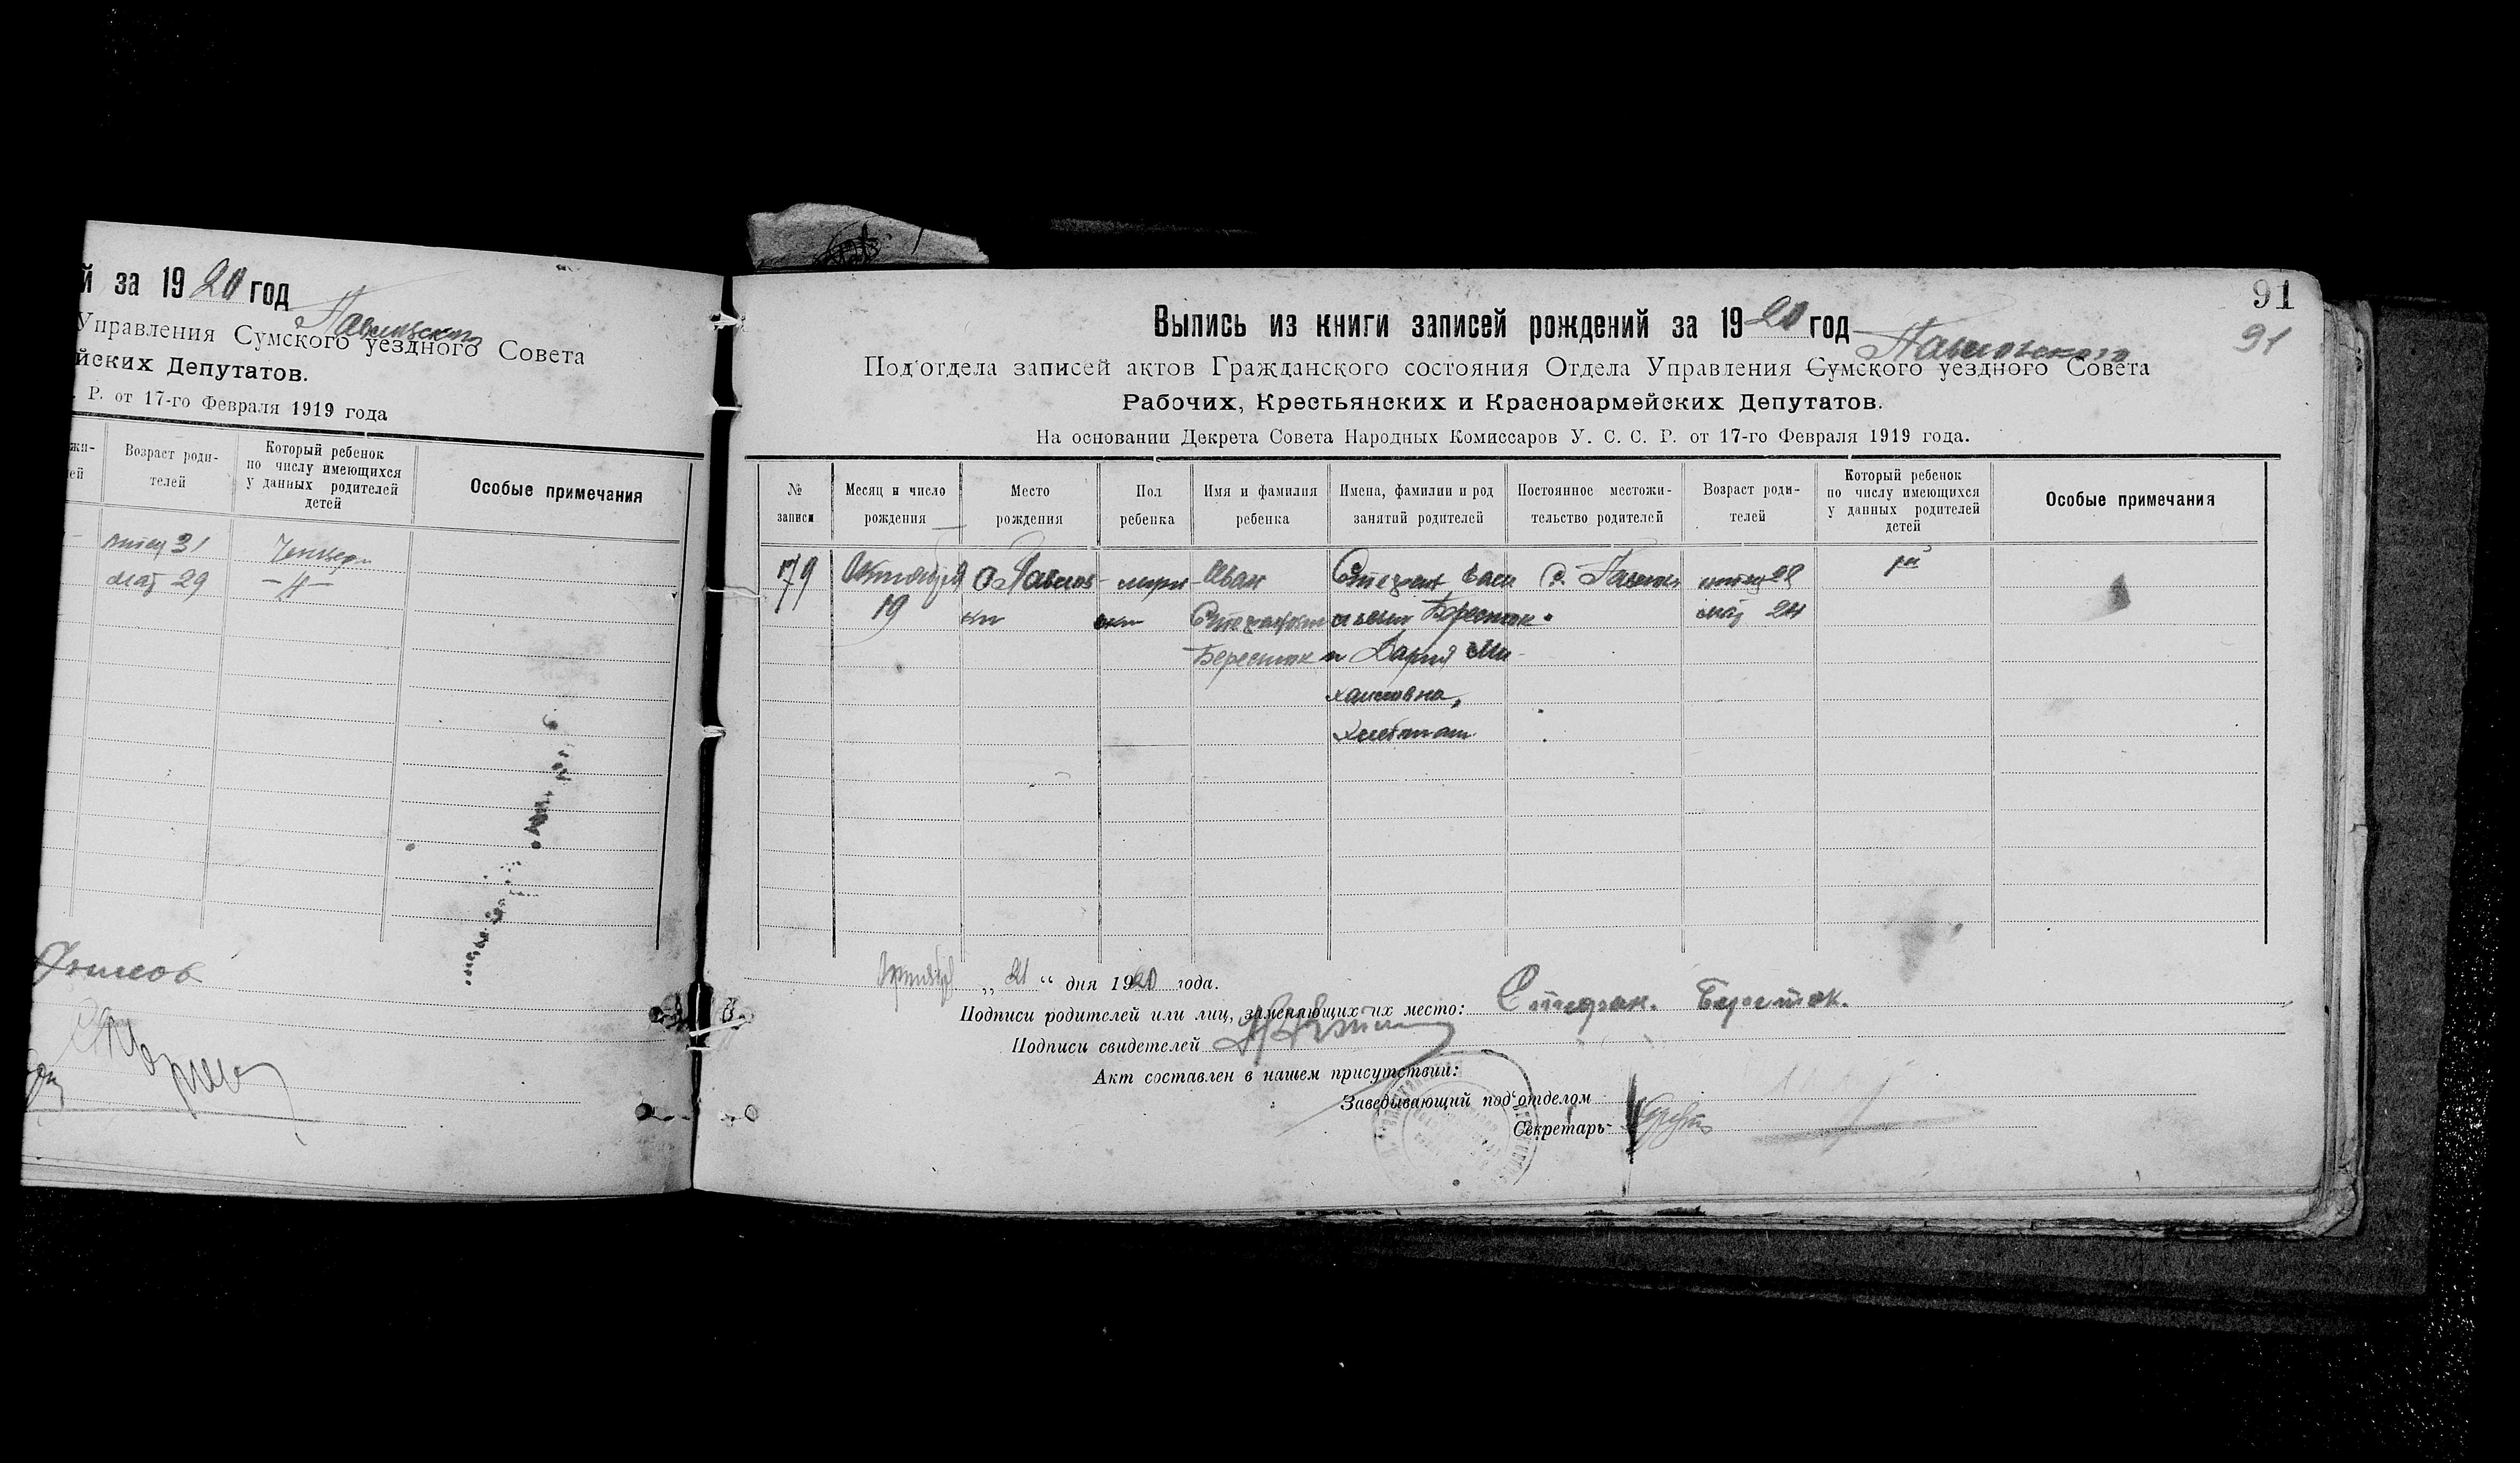 й за 1920 год
Павловского
Управления Сумского уездного Совета
йских Депутатов.
. Р. от 17-го Февраля 1919 года
жи-
ей
Возраст роди-
телей
Который ребенок
по числу имеющихся
у данных родителей
детей
Особые примечания
отец 31
мат 29
91
91
Выпись из книги записей рождений за 1920 год
Павловского
Под'отдела записей актов Гражданского состояния Отдела Управления Сумского уездного Совета
Рабочих, Крестьянских и Красноармейских Депутатов.
На основании Декрета Совета Народных Комиссаров У. С. С. Р. от 17-го Февраля 1919 года.
№
записи
Месяц и число
рождения
Место
рождения
Пол
ребенка
Имя и фамилия
ребенка
Имена, фамилии и род
занятий родителей
Постоянное местожи-
тельство родителей
Возраст роди-
телей
Который ребенок
по числу имеющихся
у данных родителей
детей
Особые примечания
179
Октября
19
с. Павлов-
ки
мужс-
кий
Иван
Стефанович
Бересток
Стефан Васи
льевич Бересток
и Дария Ми-
хайловна,
хлебопаш.
с. Павловки
отец 28
мат 24
1й
Октября „ 21 “ дня 1920 года.
Подписи родителей или лиц, заменяющих их место: Стефан. Бересток.
Подписи свидетелей
Акт составлен в нашем присутствии:
Заведывающий под'отделом
Секретарь